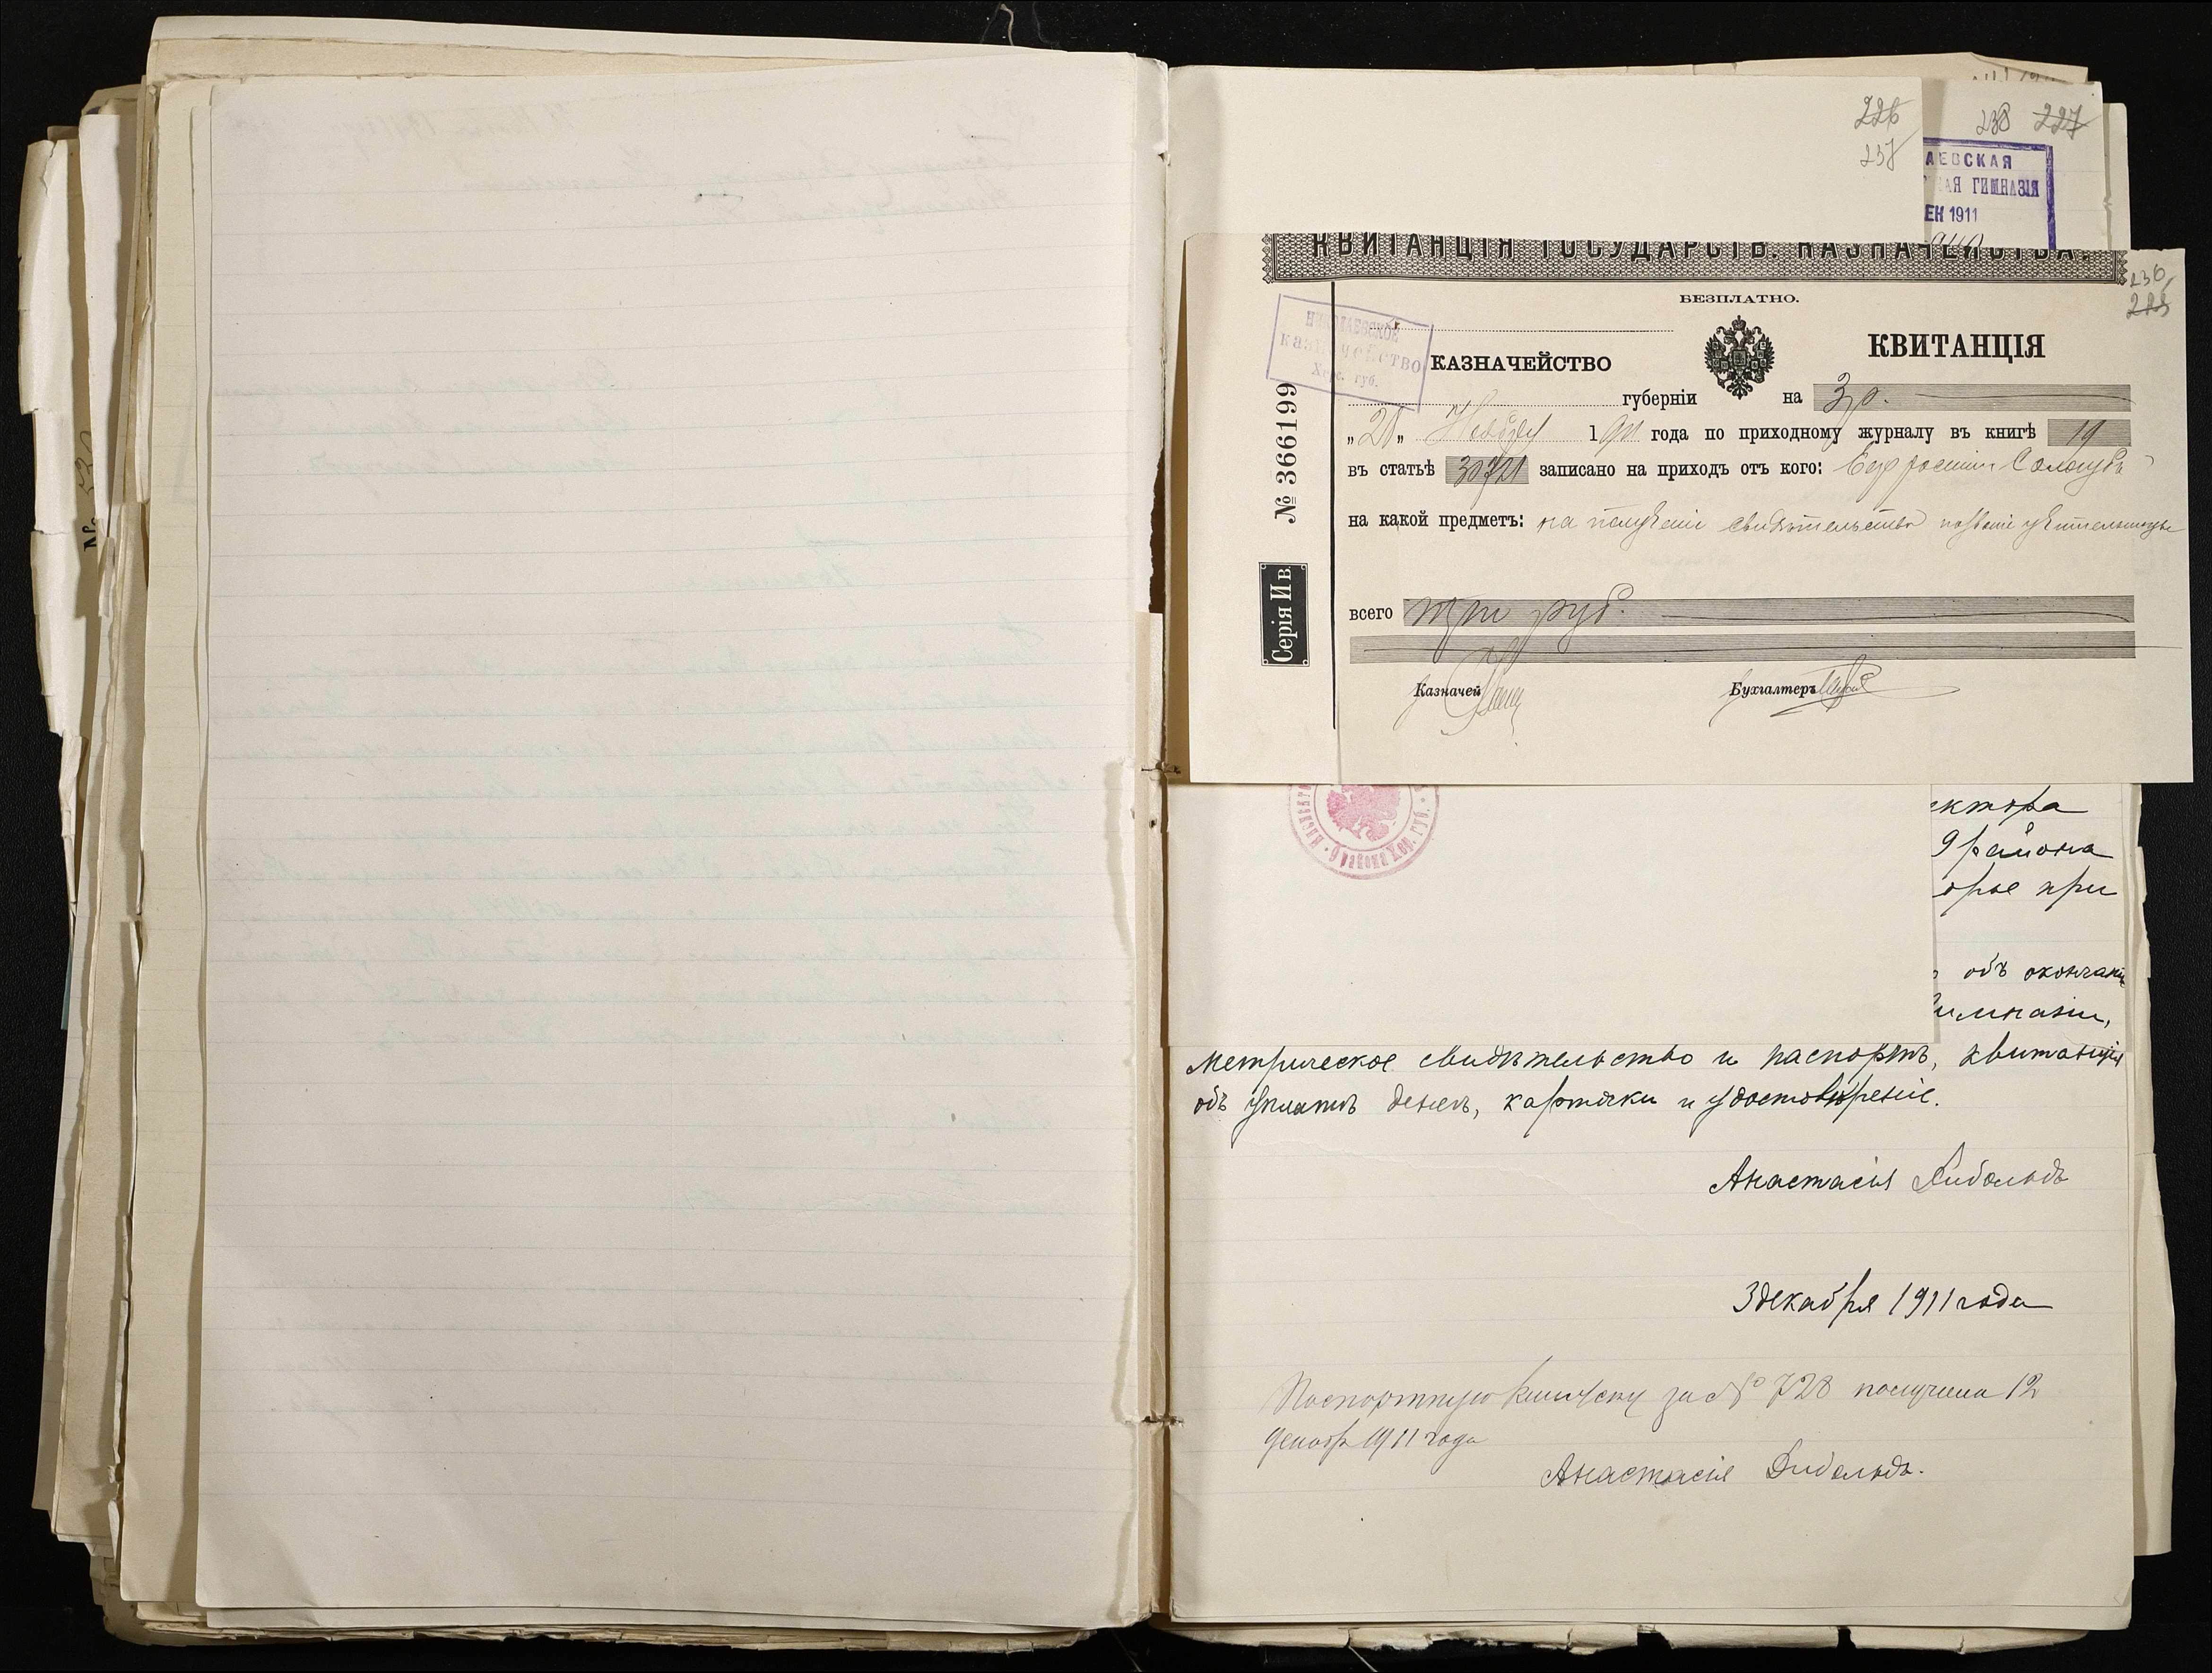 226
237
238 227
АЕВСКАЯ
АЯ ГИМНАЗІЯ
ЕН 1911
КВИТАНЦІЯ ГОСУДАРСТВ. КАЗНАЧЕЙСТВА.
236
БЕЗПЛАТНО.
НИКОЛАЕВСКОЕ
казначейство
Херс. губ.
КАЗНАЧЕЙСТВО
КВИТАНЦІЯ
губерніи
на 3 р.
"20" Ноября 1911 года по приходному журналу въ книгѣ 19
въ статьѣ 30721 записано на приходъ отъ кого: Евфросиніи Сологубъ
на какой предметъ: на полученіе свидѣтельства на званіе учительницы
всего три руб.
Казначей
Бухгалтеръ
№ 366199
Серія И в.
9 района Хер. губ.
ектора
9 района
орое при
объ окончаніи
гимназіи,
метрическое свидѣтельство и паспортъ, квитанція
объ уплатѣ денегъ, карточки и удостовѣреніе.
Анастасія Дибольдъ
3 декабря 1911 года
Паспортную книжку за № 728 получила 12
декабр 1911 года
Анастасія Дибольдъ.